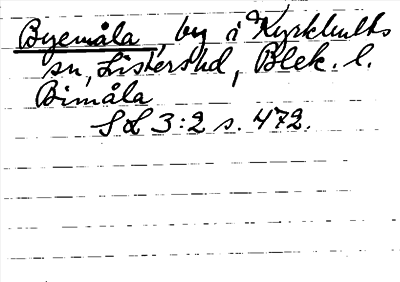 Byemåla, by i Kyrkhults
sn, Listers hd, Blek. l.
Bimåla
SL 3:2 s. 472.